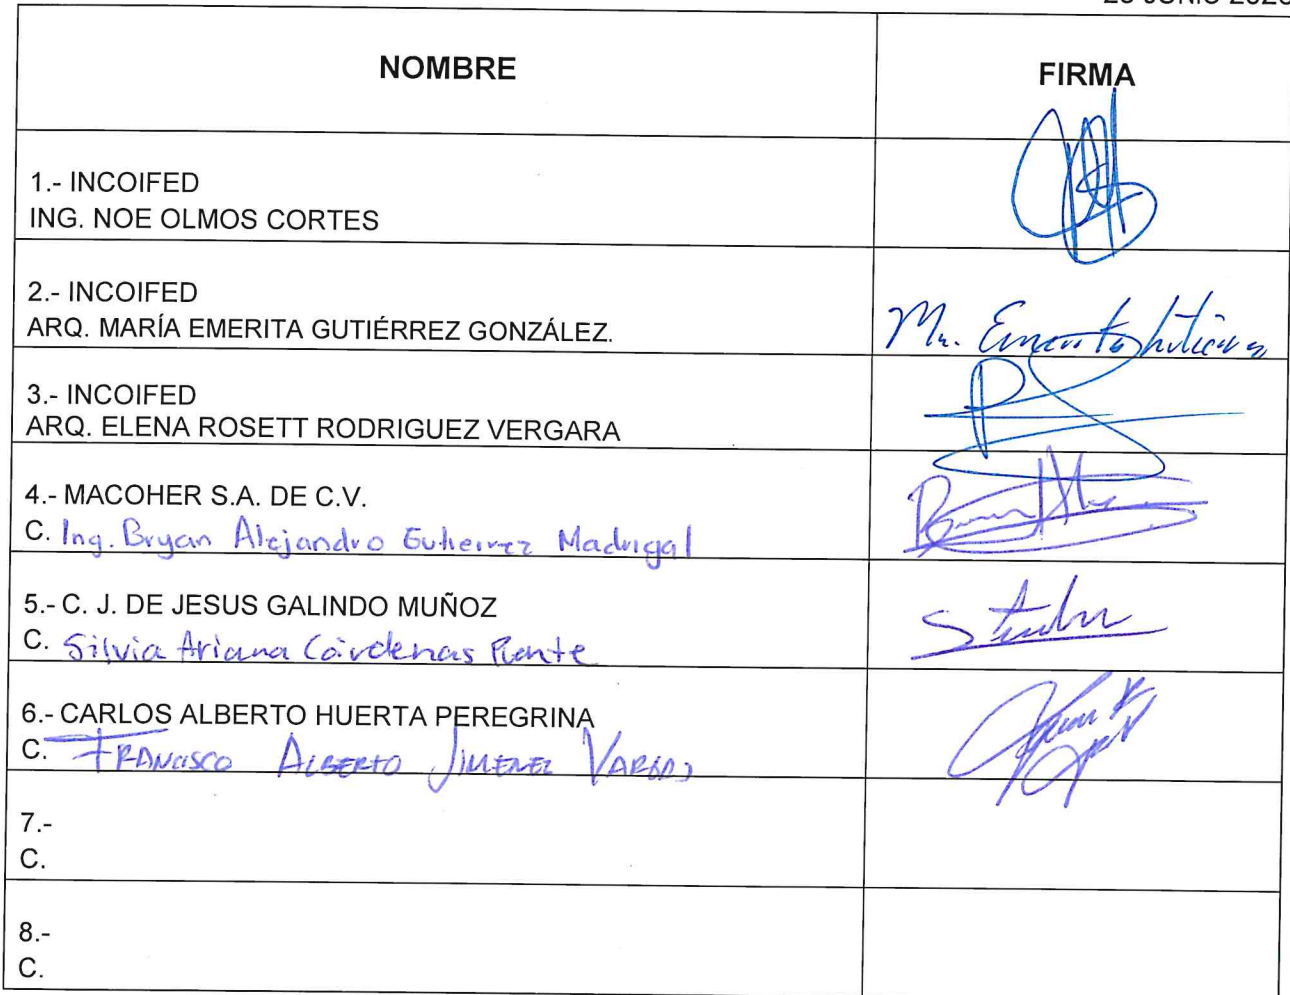 NOMBRE
FIRMA
1.- INCOIFED
ING. NOE OLMOS CORTES
2.- INCOIFED
ARQ. MARÍA EMERITA GUTIÉRREZ GONZÁLEZ.
Ma. Emerita Gutiérrez
3.- INCOIFED
ARQ. ELENA ROSETT RODRIGUEZ VERGARA
4.- MACOHER S.A. DE C.V.
C. Ing. Bryan Alejandro Gutierrez Madrigal
5.- C. J. DE JESUS GALINDO MUÑOZ
C. Silvia Ariana Cárdenas
6.- CARLOS ALBERTO HUERTA PEREGRINA
C. FRANCISCO ALBERTO JIMENEZ VARGAS
7.-
C.
8.-
C.